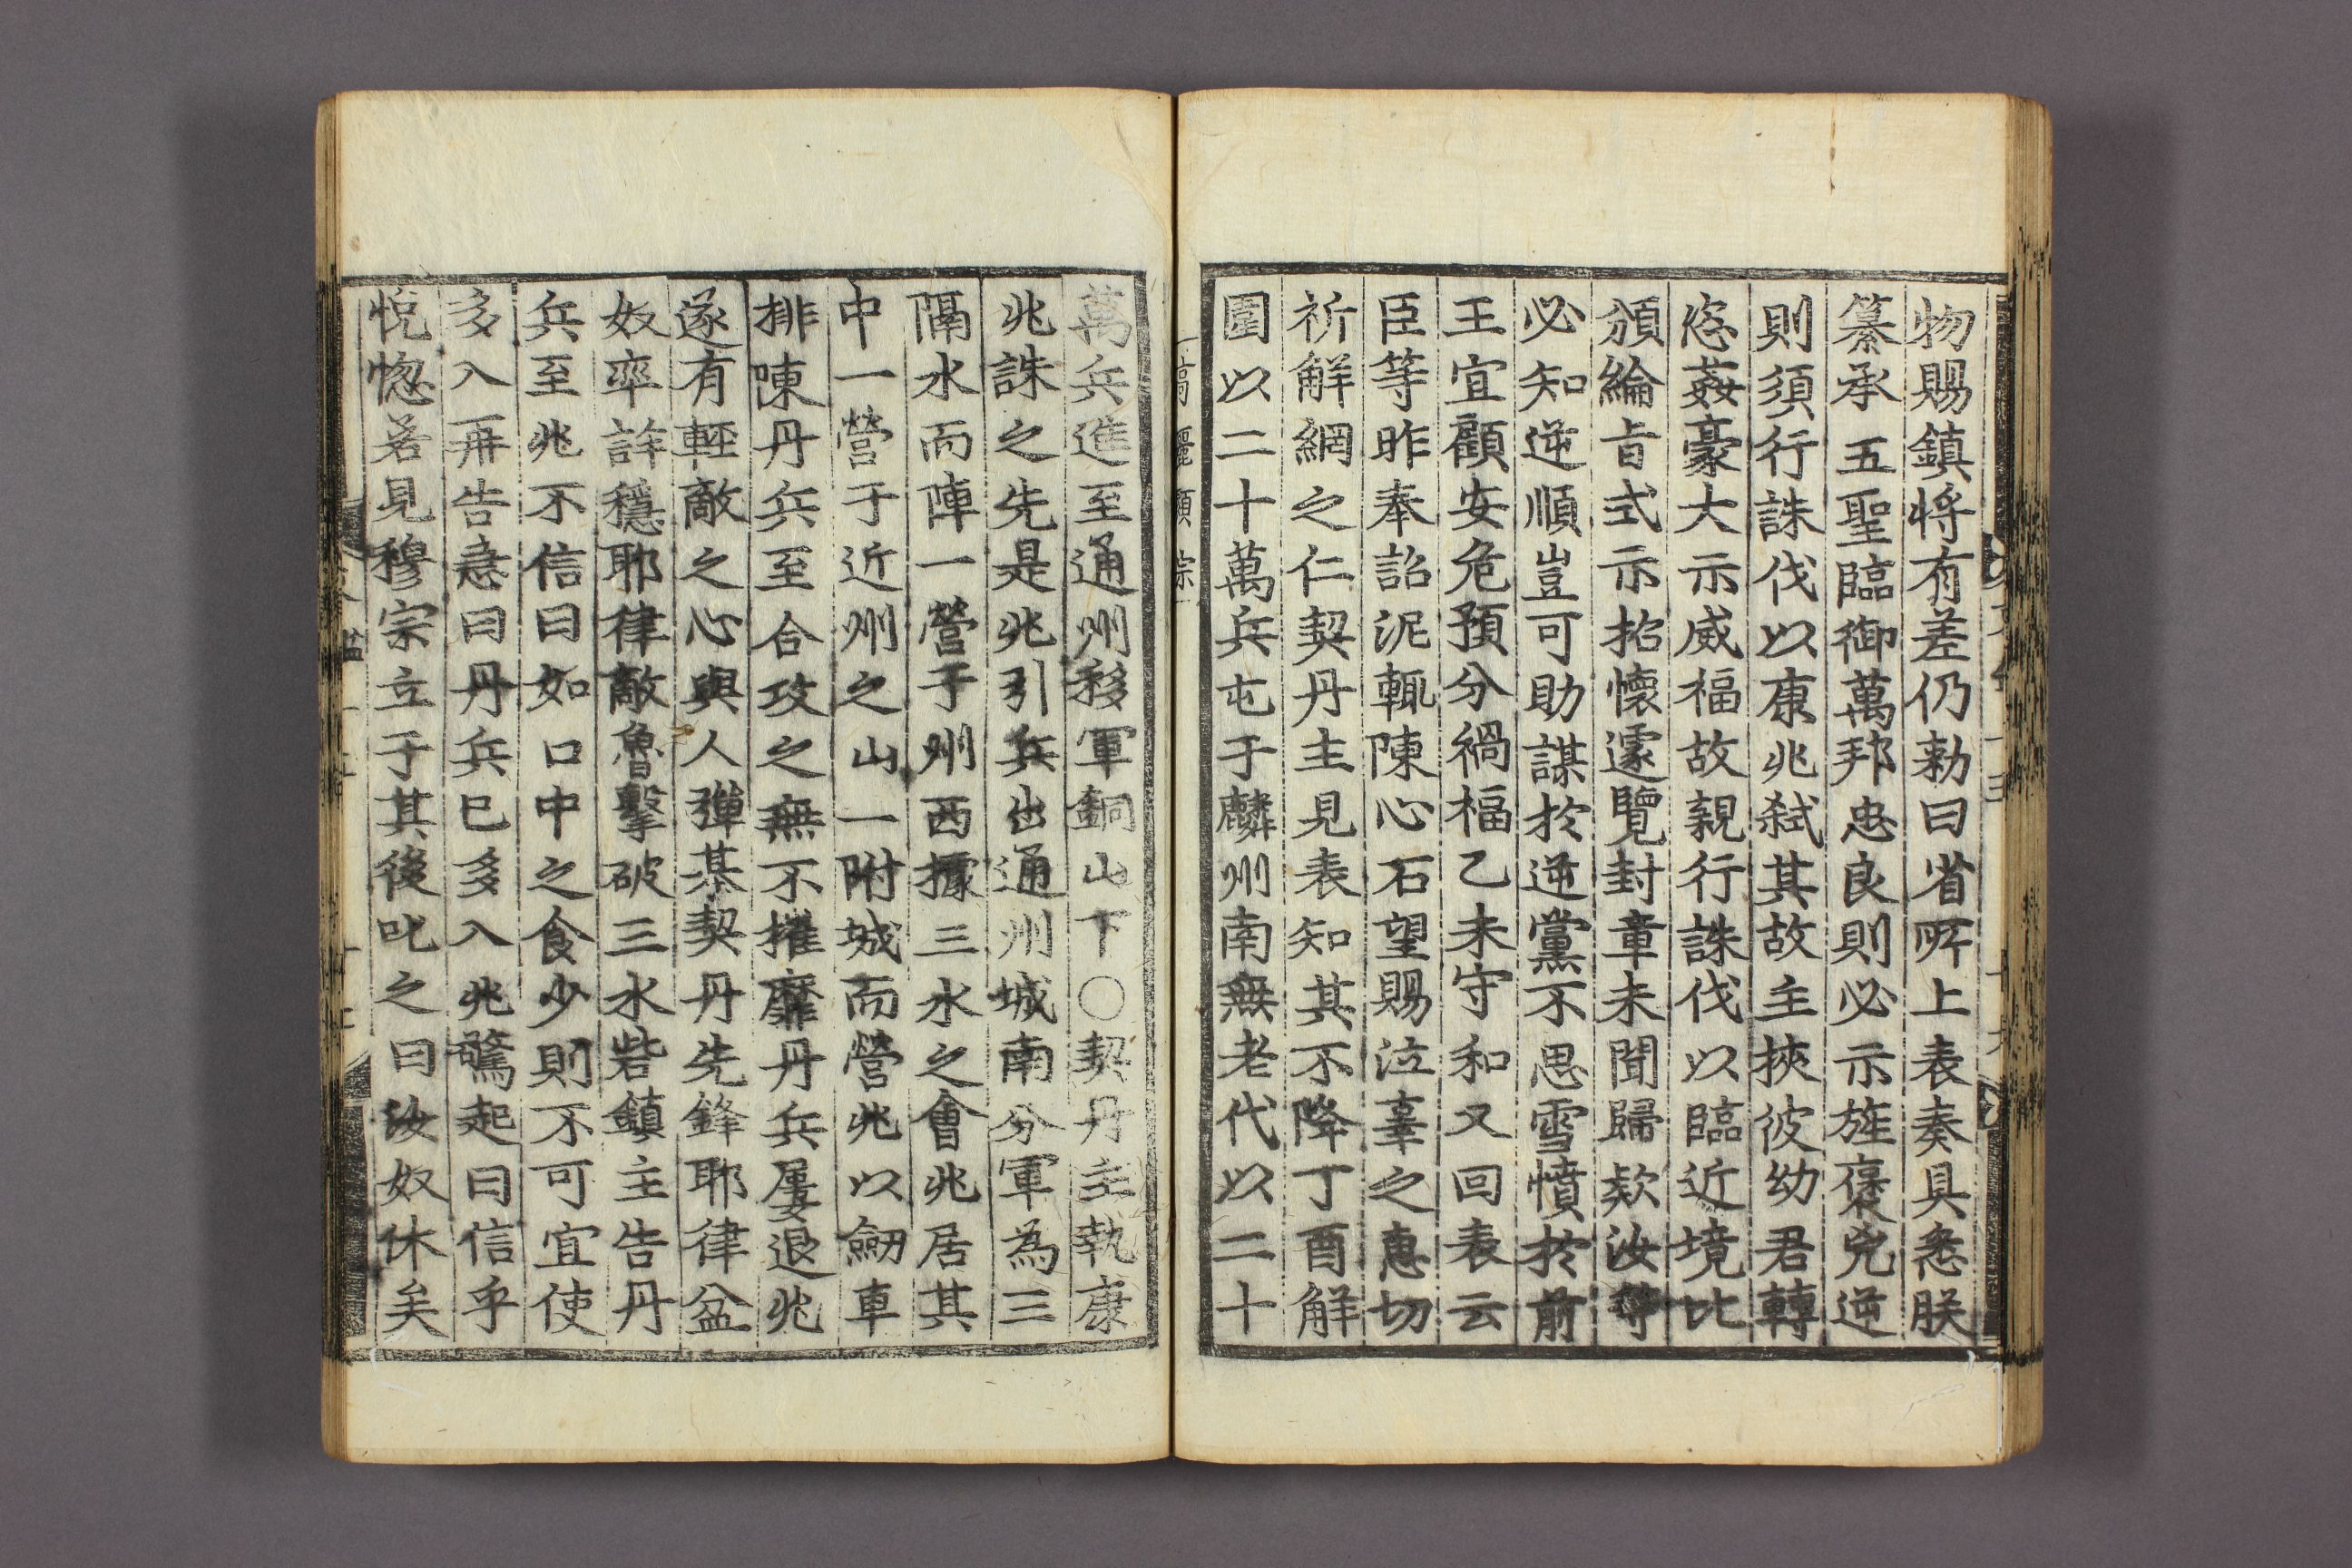 物賜鎮將有差仍勑曰省所上表奏具悉朕
纂承五聖臨御萬邦忠良則必示旌褒兇逆
則須行誅伐以康兆弑其故主挾彼幼君轉
恣姦豪大示威福故親行誅伐以臨近境比
頒綸旨式示招懷遽覽封章未聞歸欵汝等
必知逆順豈可助謀於逆黨不思雪憤於前
王宜顧安危預分禍福乙未守和又回表云
臣等昨奉詔泥輒陳心石望賜泣辜之惠切
祈解網之仁契丹主見表知其不降丁酉解
圍以二十萬兵屯于麟州南無老代以二十
高麗顯宗
萬兵進至通州移軍銅山下○契丹主執康
兆誅之先是兆引兵出通州城南分軍為三
隔水而陣一營于州西據三水之會兆居其
中一營于近州之山一附城而營兆以劒車
排陳丹兵至合攻之無不摧靡丹兵屢退兆
遂有輕敵之心與人彈棊契丹先鋒耶律盆
奴率詳穩耶律敵魯擊破三水砦鎮主告丹
兵至兆不信曰如口中之食少則不可宜使
多入再告急曰丹兵已多入兆驚起曰信乎
恍惚若見穆宗立于其後叱之曰汝奴休矣